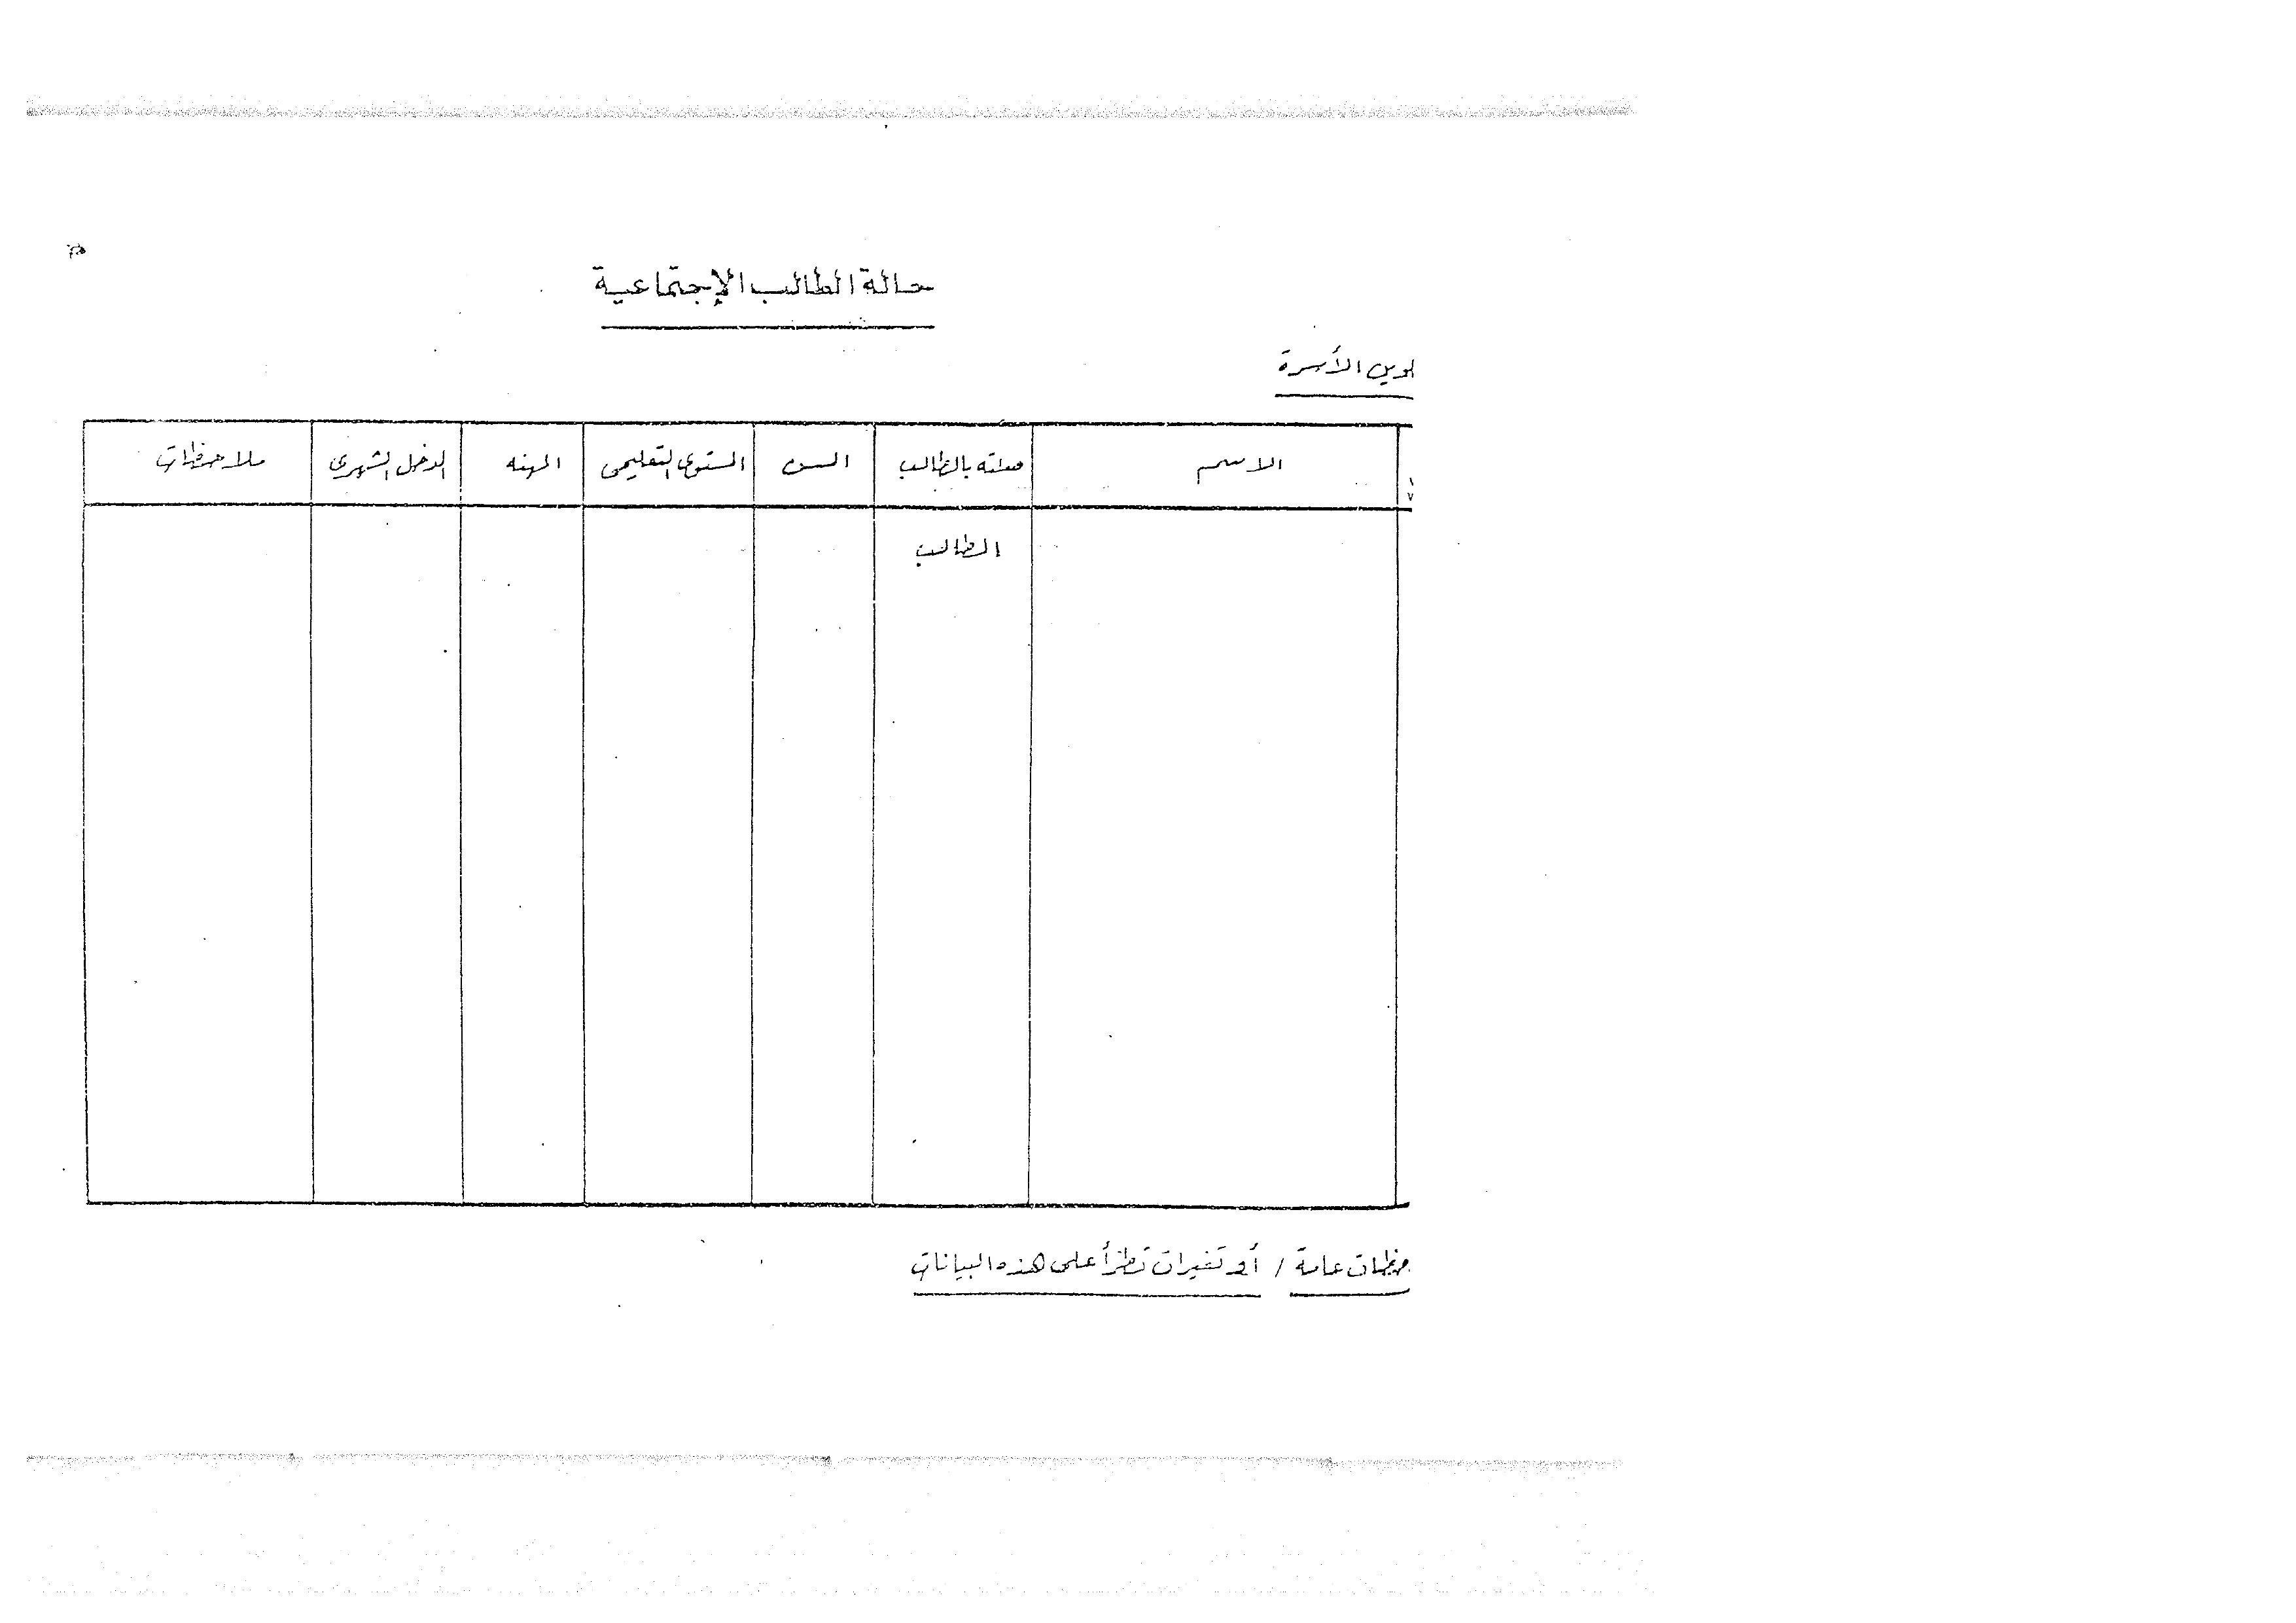 حالة الطالب الإجتماعية
الأسرة
الاسم صلته بالطالب السن المستوى التعليمى المهنه الدخل الشهرى ملاحظات
الطالب
عامة / أو تغيرات تطرأ على هذه البيانات